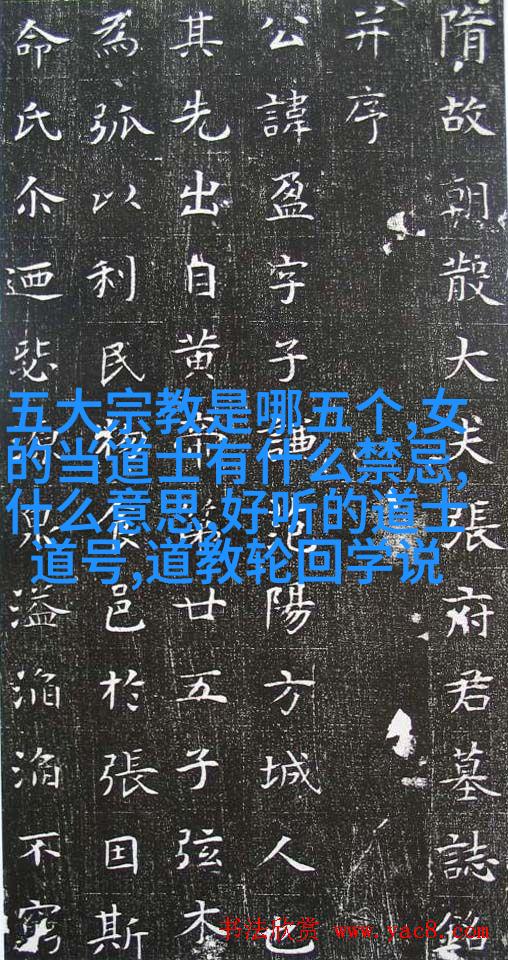 隋故朝散大夫張府君墓誌銘
并序
公諱盈字子謙范陽方城人也
其先出自黄帝第廿五子弦木
為弧以利民邑於張因斯
命氏尒迺溢滔滔不窮
五大宗教是哪五个,女
的当道士有什么禁忌,
什么意思,好听的道士
道号,道教轮回学说
书法欣赏 www.yac8.com